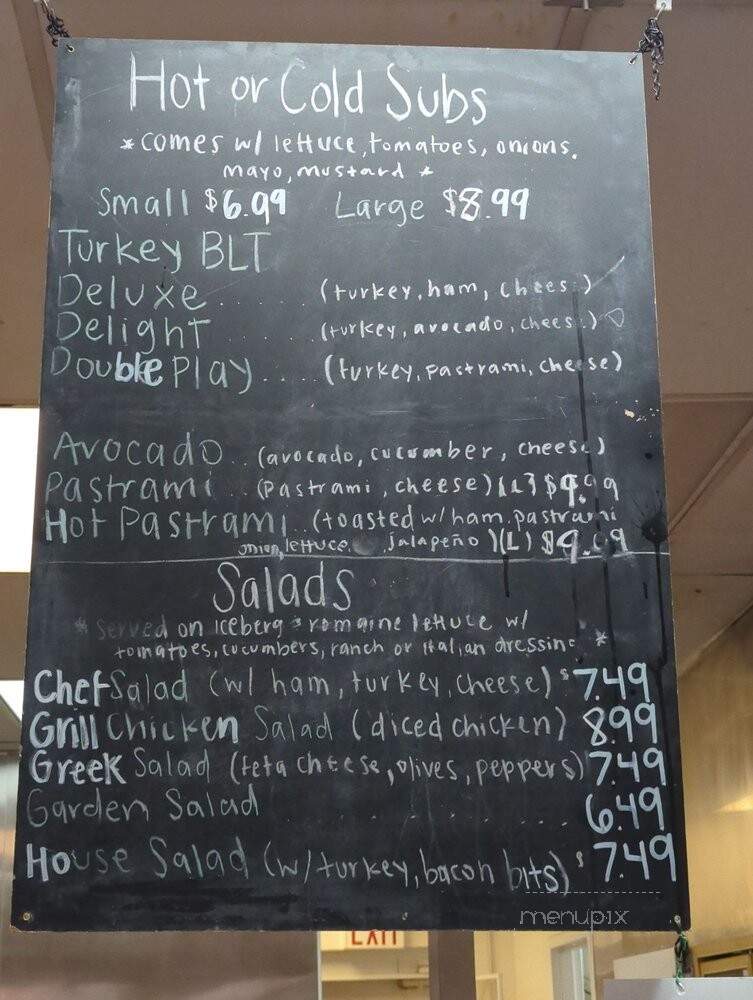 Hot or Cold Subs
* comes w/ lettuce, tomatoes, onions,
mayo, mustard *
Small $6.99 Large $8.99
Turkey BLT
Deluxe ...... (turkey, ham, chees )
Delight ...... (turkey, avocado, chees )
Double Play ..... (turkey, pastrami, cheese)
Avocado .. (avocado, cucumber, cheese)
Pastrami .. (Pastrami, cheese) (L) $9.99
Hot Pastrami .. (toasted w/ham, pastrami
onion, lettuce, jalapeño) (L) $9.09
Salads
* Served on iceberg & romaine lettuce w/
tomatoes, cucumbers, ranch or italian dressing *
Chef Salad (w/ ham, turkey, cheese) $7.49
Grill Chicken Salad (diced chicken) 8.99
Greek Salad (feta cheese, olives, peppers) 7.49
Garden Salad .......... 6.49
House Salad (w/turkey, bacon bits) $7.49
menupix
EXIT